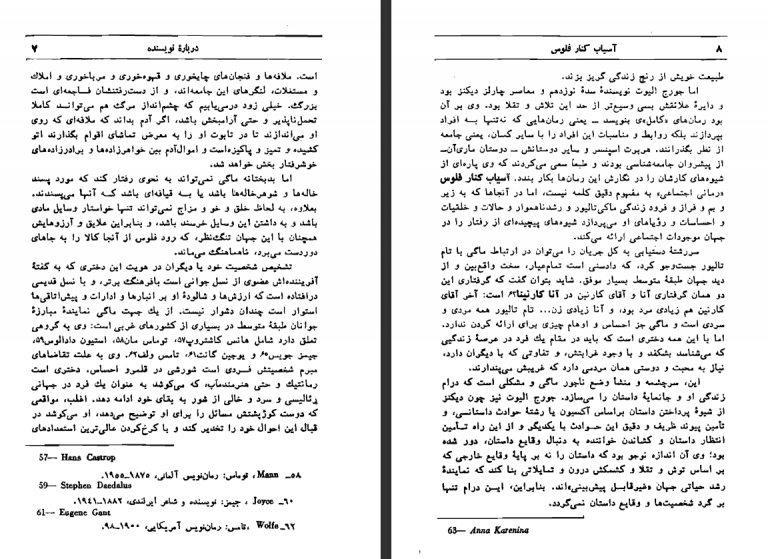 دربارهٔ نویسنده ۷
است. ملافه‌ها و فنجان‌های چایخوری و قهوه‌خوری و مرباخوری و املاك
و مستغلات، لنگرهای این جامعه‌اند، و از دست‌رفتنشان فاجعه‌ای است
بزرگ. خیلی زود درمی‌یابیم که چشم‌انداز مرگ هم می‌تواند کاملا
تحمل‌ناپذیر و حتی آرامبخش باشد، اگر آدم بداند که ملافه‌ای که روی
او می‌اندازند تا در تابوت او را به معرض تماشای اقوام بگذارند اتو
کشیده و تمیز و پاکیزه‌است و اموال‌آدم بین خواهرزاده‌ها و برادرزاده‌های
خوشرفتار بخش خواهد شد.
اما بدبختانه ماگی نمی‌تواند به نحوی رفتار کند که مورد پسند
خاله‌ها و شوهرخاله‌ها باشد یا به قیافه‌ای باشد که آنها می‌پسندند.
بعلاوه، به لحاظ خلق و خو و مزاج نمی‌تواند تنها خواستار وسایل مادی
باشد و به داشتن این وسایل خرسند باشد، و بنابراین علایق و آرزوهایش
همچنان با این جهان تنگ‌نظر، که رود فلوس از آنجا کالا را به جاهای
دوردست می‌برد، ناهماهنگ می‌ماند.
تشخیص شخصیت خود یا دیگران در هویت این دختری که به گفتهٔ
آفریننده‌اش عضوی از نسل جوانی است بافرهنگ برتر، و با نسل قدیمی
درافتاده است که ارزش‌ها و شالودهٔ او بر انبارها و ادارات و پیش‌اتاقی‌ها
استوار است چندان دشوار نیست. از یك جهت ماگی نمایندهٔ مبارزهٔ
جوانان طبقهٔ متوسط در بسیاری از کشورهای غربی است: وی به گروهی
تعلق دارد شامل هانس کاشتروپ۵۷، توماس مان۵۸، استیون دادالوس۵۹،
جیمز جویس۶۰ و یوجین گانت۶۱، تامس ولف۶۲. وی به علت تقاضاهای
مبرم شخصیتش فردی است شورشی در قلمرو احساس، دختری است
رمانتیك و حتی هنرمندمآب، که می‌کوشد به عنوان یك فرد در جهانی
رئالیسی و سرد و خالی از شور به بقای خود ادامه دهد. اغلب، مواقعی
که دوست گوژپشتش مسائل را برای او توضیح می‌دهد، او می‌کوشد در
قبال این احوال خود را تخدیر کند و با کرخ‌کردن عالی‌ترین استعدادهای
57— Hans Castrop
۵۸ــ Mann، توماس: رمان‌نویس آلمانی، ۱۸۷۵ــ۱۹۵۵.
59— Stephen Daedalus
۶۰ــ Joyce، جیمز: نویسنده و شاعر ایرلندی، ۱۸۸۲ــ۱۹۴۱.
61— Eugene Gant
۶۲ــ Wolfe، تامس: رمان‌نویس آمریکایی، ۱۹۰۰ــ۹۸.
۸ آسیاب کنار فلوس
طبیعت خویش از رنج زندگی گریز بزند.
اما جورج الیوت نویسندهٔ سدهٔ نوزدهم و معاصر چارلز دیکنز بود
و دایرهٔ علائقش بسی وسیع‌تر از حد این تلاش و تقلا بود. وی بر آن
بود رمان‌های «کامل»ی بنویسد ــ یعنی رمان‌هایی که نه‌تنها به افراد
بپردازند بلکه روابط و مناسبات این افراد را با سایر کسان، یعنی جامعه
از نظر بگذرانند. هربرت اسپنسر و سایر دوستانش ــ دوستان ماری‌آن ــ
از پیشروان جامعه‌شناسی بودند و طبعا سعی می‌کردند که وی پاره‌ای از
شیوه‌های کارشان را در نگارش این رمان‌ها بکار بندد. آسیاب کنار فلوس
«رمانی اجتماعی» به مفهوم دقیق کلمه نیست، اما در آنجاها که به زیر
و بم و فراز و فرود زندگی ماگی‌تالیور و رشدناهموار و حالات و خلقیات
و احساسات و رؤیاهای او می‌پردازد شیوه‌های پیچیده‌ای از رفتار را در
جهان موجودات اجتماعی ارائه می‌کند.
سررشتهٔ دستیابی به کل جریان را می‌توان در ارتباط ماگی با تام
تالیور جست‌وجو کرد، که دادستی است تمام‌عیار، سخت واقع‌بین و از
دید جهان طبقهٔ متوسط بسیار موفق. شاید بتوان گفت که گرفتاری این
دو همان گرفتاری آنا و آقای کارنین در آنا کارنینا۶۳ است: آخر آقای
کارنین هم زیادی مرد بود، و آنا زیادی زن... تام تالیور همه مردی و
سردی است و ماگی جز احساس و اوهام چیزی برای ارائه کردن ندارد.
اما با این همه دختری است که باید در مقام یك فرد در عرصهٔ زندگیی
که می‌شناسد بشکفد و با وجود غرابتش، و تفاوتی که با دیگران دارد،
نیاز به محبت و دوستی همان مردمی دارد که غریبش می‌پندارند.
این، سرچشمه و منشأ وضع ناجور ماگی و مشکلی است که درام
زندگی او و جانمایهٔ داستان را می‌سازد. جورج الیوت نیز چون دیکنز
از شیوهٔ پرداختن داستان براساس آکسیون یا رشتهٔ حوادث داستانسی، و
تأمین پیوند ظریف و دقیق این حوادث با یکدیگر و از این راه تأمین
انتظار داستان و کشاندن خواننده به دنبال وقایع داستان، دور شده
بود؛ وی آن اندازه نوجو بود که داستان را نه بر پایهٔ وقایع خارجی که
بر اساس توش و تقلا و کشمکش درون و تمایلاتی بنا کند که نمایندهٔ
رشد حیاتی جهان «غیرقابل پیش‌بینی»‌اند. بنابراین، این درام تنها
بر گرد شخصیت‌ها و وقایع داستان نمی‌گردد.
63— Anna Karenina